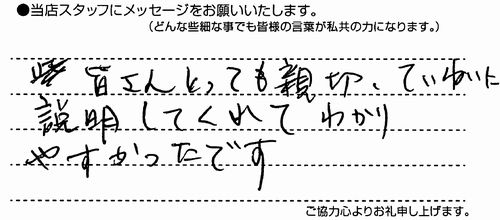 ●当店スタッフにメッセージをお願いいたします。
（どんな些細な事でも皆様の言葉が私共の力になります。）
皆さんとっても親切、ていねいに
説明してくれて わかり
やすかったです
ご協力心よりお礼申し上げます。